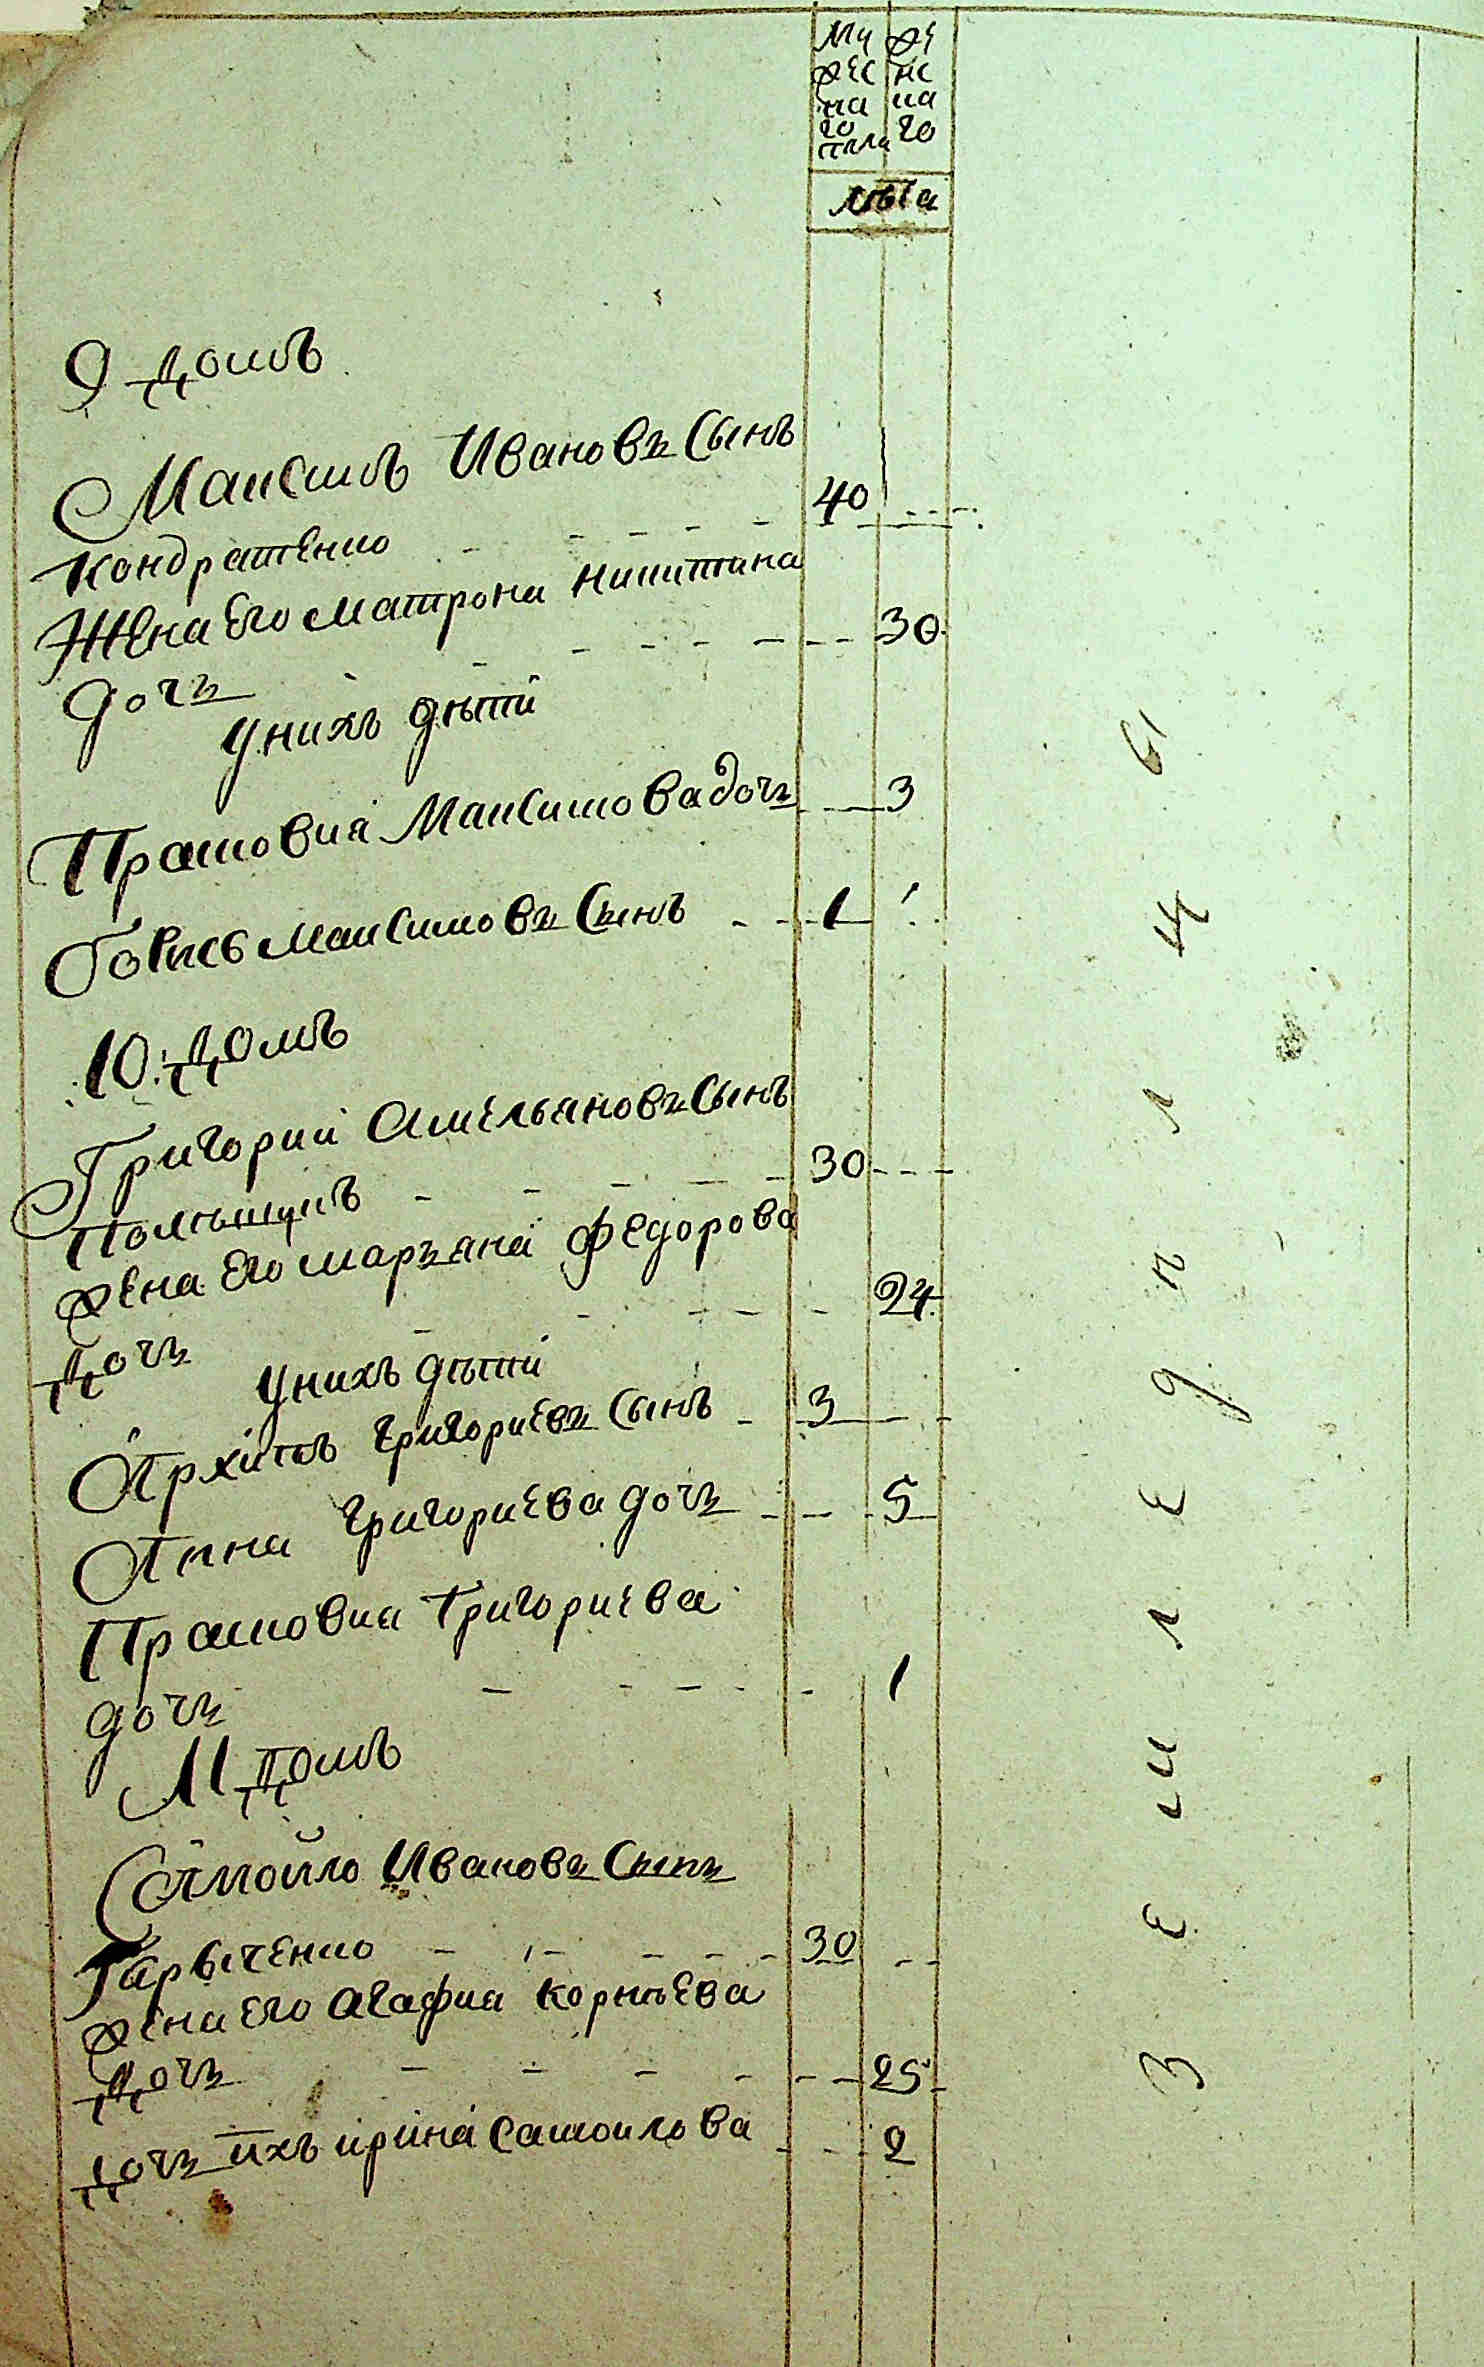 му же
жес нс
на на
го го
пола
лѣта
9 домъ
Максимъ Ивановъ Сынъ
Кондратенко 40
Жена Его матрона никитина
дочъ 30
унихъ дѣти
Прасковия Максимова дочъ 3
Борисъ максимовъ Сынъ 1
10 домъ
Григорий Амельяновъ Сынъ
30
жена Его маръяна федорова
дочъ 24
унихъ дѣти
Архипъ григориевъ Сынъ 3
Анна григориева дочъ 5
Прасковия Григориева
дочъ 1
11 домъ
Самойло Ивановъ Сынъ
30
жена Его агафия корнѣева
дочъ 25
дочъ ихъ ирина самоилова 2
земледелцы